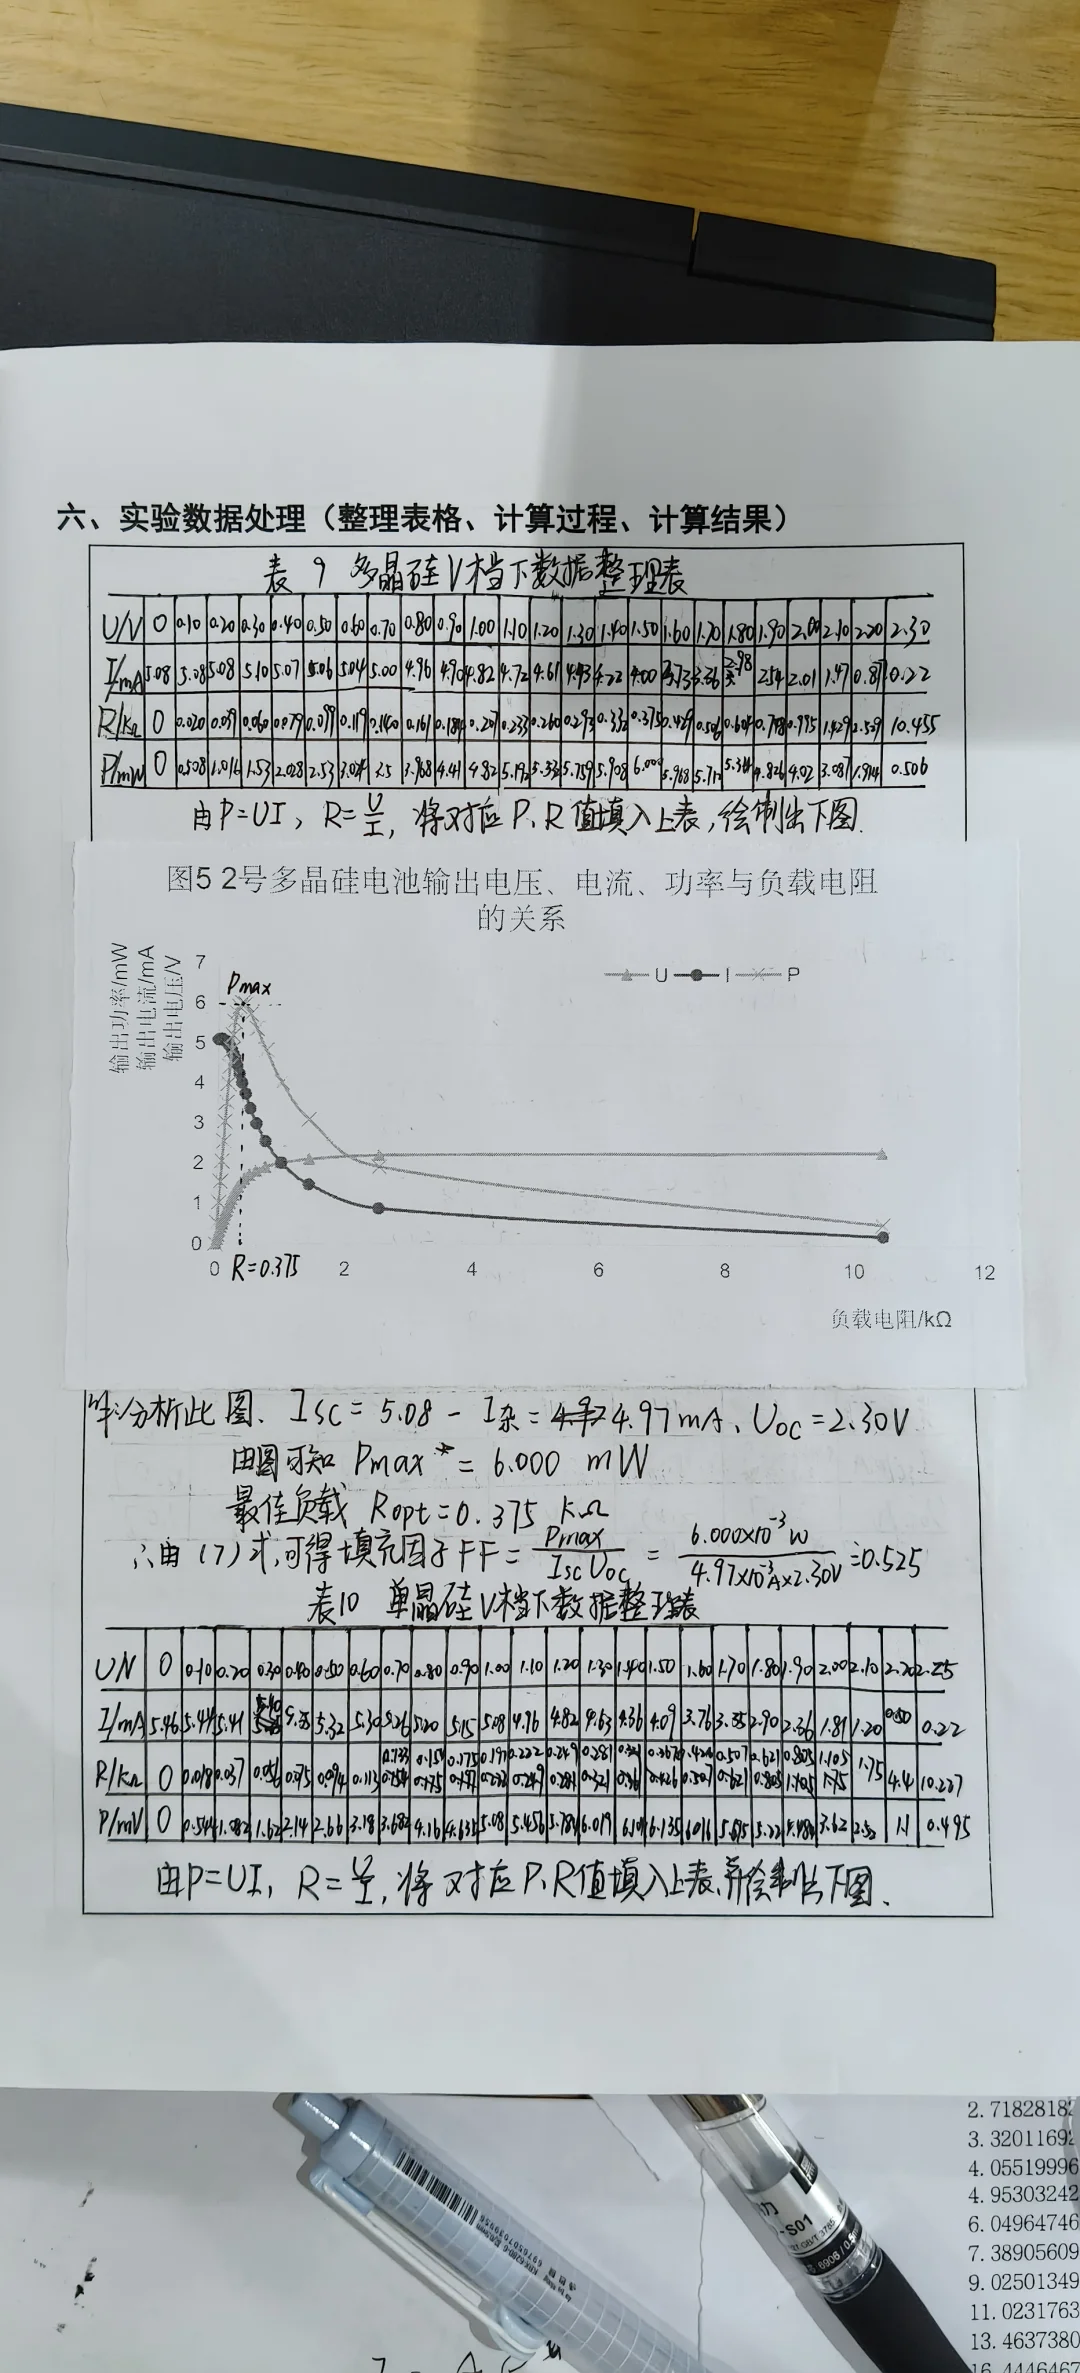 六、实验数据处理（整理表格、计算过程、计算结果）
表 9 多晶硅 V档下数据整理表
U/V 0 0.10 0.20 0.30 0.40 0.50 0.60 0.70 0.80 0.90 1.00 1.10 1.20 1.30 1.40 1.50 1.60 1.70 1.80 1.90 2.00 2.10 2.20 2.30
I/mA 5.08 5.08 5.08 5.10 5.07 5.06 5.04 5.00 4.96 4.90 4.82 4.72 4.61 4.43 4.22 4.00 3.73 3.36 2.98 2.54 2.01 1.47 0.87 0.22
R/kΩ 0 0.020 0.039 0.060 0.079 0.099 0.119 0.140 0.161 0.184 0.207 0.233 0.260 0.293 0.332 0.375 0.429 0.506 0.604 0.748 0.995 1.429 2.529 10.455
P/mW 0 0.508 1.016 1.53 2.028 2.53 3.024 3.5 3.968 4.41 4.82 5.192 5.532 5.759 5.908 6.000 5.968 5.712 5.364 4.826 4.02 3.087 1.914 0.506
由P=UI，R=U/I，将对应P、R值填入上表，绘制出下图.
图5 2号多晶硅电池输出电压、电流、功率与负载电阻
的关系
输出功率/mW
输出电流/mA
输出电压/V
7
U I P
Pmax
6
5
4
3
2
1
0
0 R=0.375 2 4 6 8 10 12
负载电阻/kΩ
解:分析此图、Isc = 5.08 - I杂 = 4.97mA、Uoc = 2.30V
由图可知 Pmax* = 6.000 mW
最佳负载 Ropt = 0.375 kΩ
∴由（7）式，可得填充因子FF = Pmax/IscUoc = 6.000×10⁻³W/4.97×10⁻³A×2.30V ≐ 0.525
表10 单晶硅V档下数据整理表
U/V 0 0.10 0.20 0.30 0.40 0.50 0.60 0.70 0.80 0.90 1.00 1.10 1.20 1.30 1.40 1.50 1.60 1.70 1.80 1.90 2.00 2.10 2.20 2.25
I/mA 5.46 5.44 5.41 5.35 5.32 5.30 5.26 5.20 5.15 5.08 4.96 4.82 4.63 4.36 4.09 3.76 3.35 2.90 2.36 1.81 1.20 0.50 0.22
R/kΩ 0 0.018 0.037 0.056 0.075 0.094 0.113 0.133 0.154 0.175 0.197 0.222 0.249 0.281 0.321 0.367 0.426 0.507 0.621 0.805 1.105 1.75 4.4 10.227
P/mV 0 0.544 1.082 1.62 2.14 2.66 3.18 3.682 4.16 4.635 5.08 5.456 5.784 6.019 6.104 6.135 6.016 5.695 5.22 4.484 3.62 2.52 1.1 0.495
由P=UI，R=U/I，将对应P、R值填入上表，并绘制出下图、
2.7182818
3.3201169
4.05519996
4.95303242
6.04964746
7.38905609
9.02501349
11.0231763
13.4637380
S01